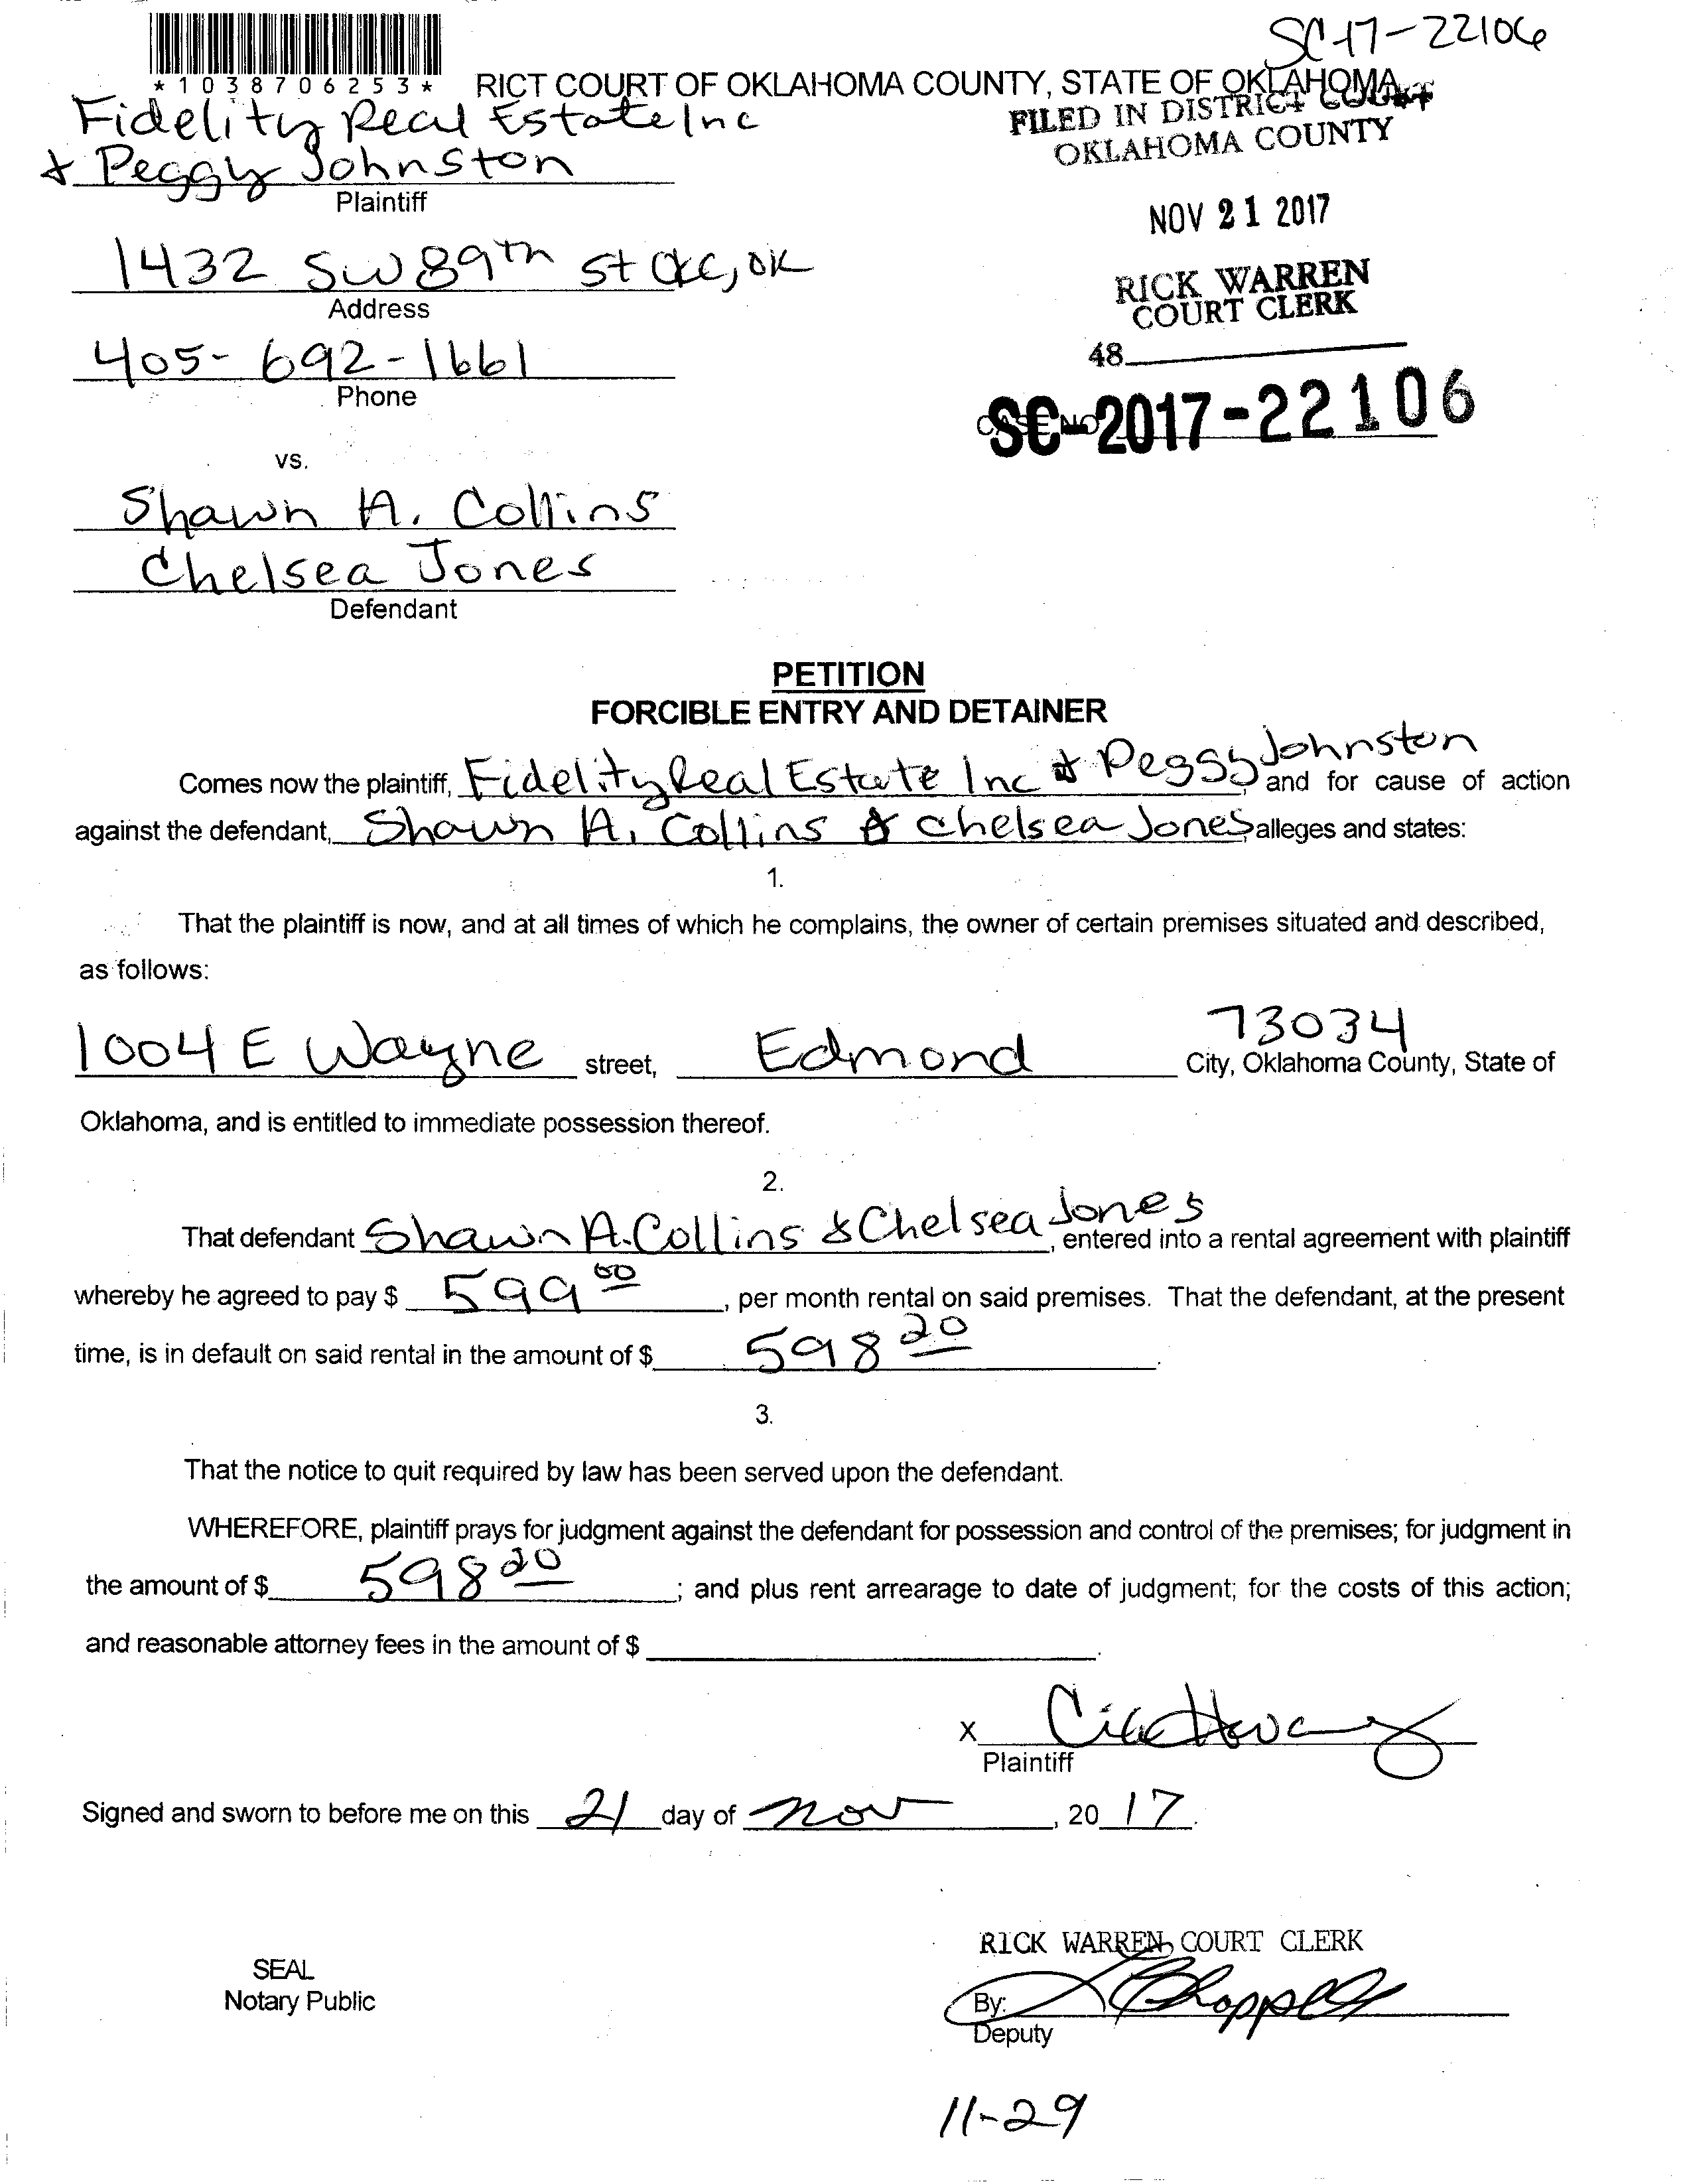 SC-17-22106
*1038706253*
RICT COURT OF OKLAHOMA COUNTY, STATE OF OKLAHOMA
Fidelity Real Estate Inc
& Peggy Johnston
Plaintiff
FILED IN DISTRICT COURT
OKLAHOMA COUNTY
NOV 21 2017
RICK WARREN
COURT CLERK
48
1432 SW 89th St OKC, OK
Address
405-692-1661
Phone
CASE NO
SC-2017-22106
vs.
Shawn A. Collins
Chelsea Jones
Defendant
PETITION
FORCIBLE ENTRY AND DETAINER
Comes now the plaintiff, Fidelity Real Estate Inc & Peggy Johnston, and for cause of action
against the defendant, Shawn A. Collins & Chelsea Jones, alleges and states:
1.
That the plaintiff is now, and at all times of which he complains, the owner of certain premises situated and described,
as follows:
1004 E Wayne street, Edmond 73034 City, Oklahoma County, State of
Oklahoma, and is entitled to immediate possession thereof.
2.
That defendant Shawn A. Collins & Chelsea Jones, entered into a rental agreement with plaintiff
whereby he agreed to pay $ 599 00, per month rental on said premises. That the defendant, at the present
time, is in default on said rental in the amount of $ 598 20.
3.
That the notice to quit required by law has been served upon the defendant.
WHEREFORE, plaintiff prays for judgment against the defendant for possession and control of the premises; for judgment in
the amount of $ 598 20; and plus rent arrearage to date of judgment; for the costs of this action;
and reasonable attorney fees in the amount of $
X
Plaintiff
Signed and sworn to before me on this 21 day of Nov, 2017.
RICK WARREN, COURT CLERK
SEAL
Notary Public
By:
Deputy
11-29